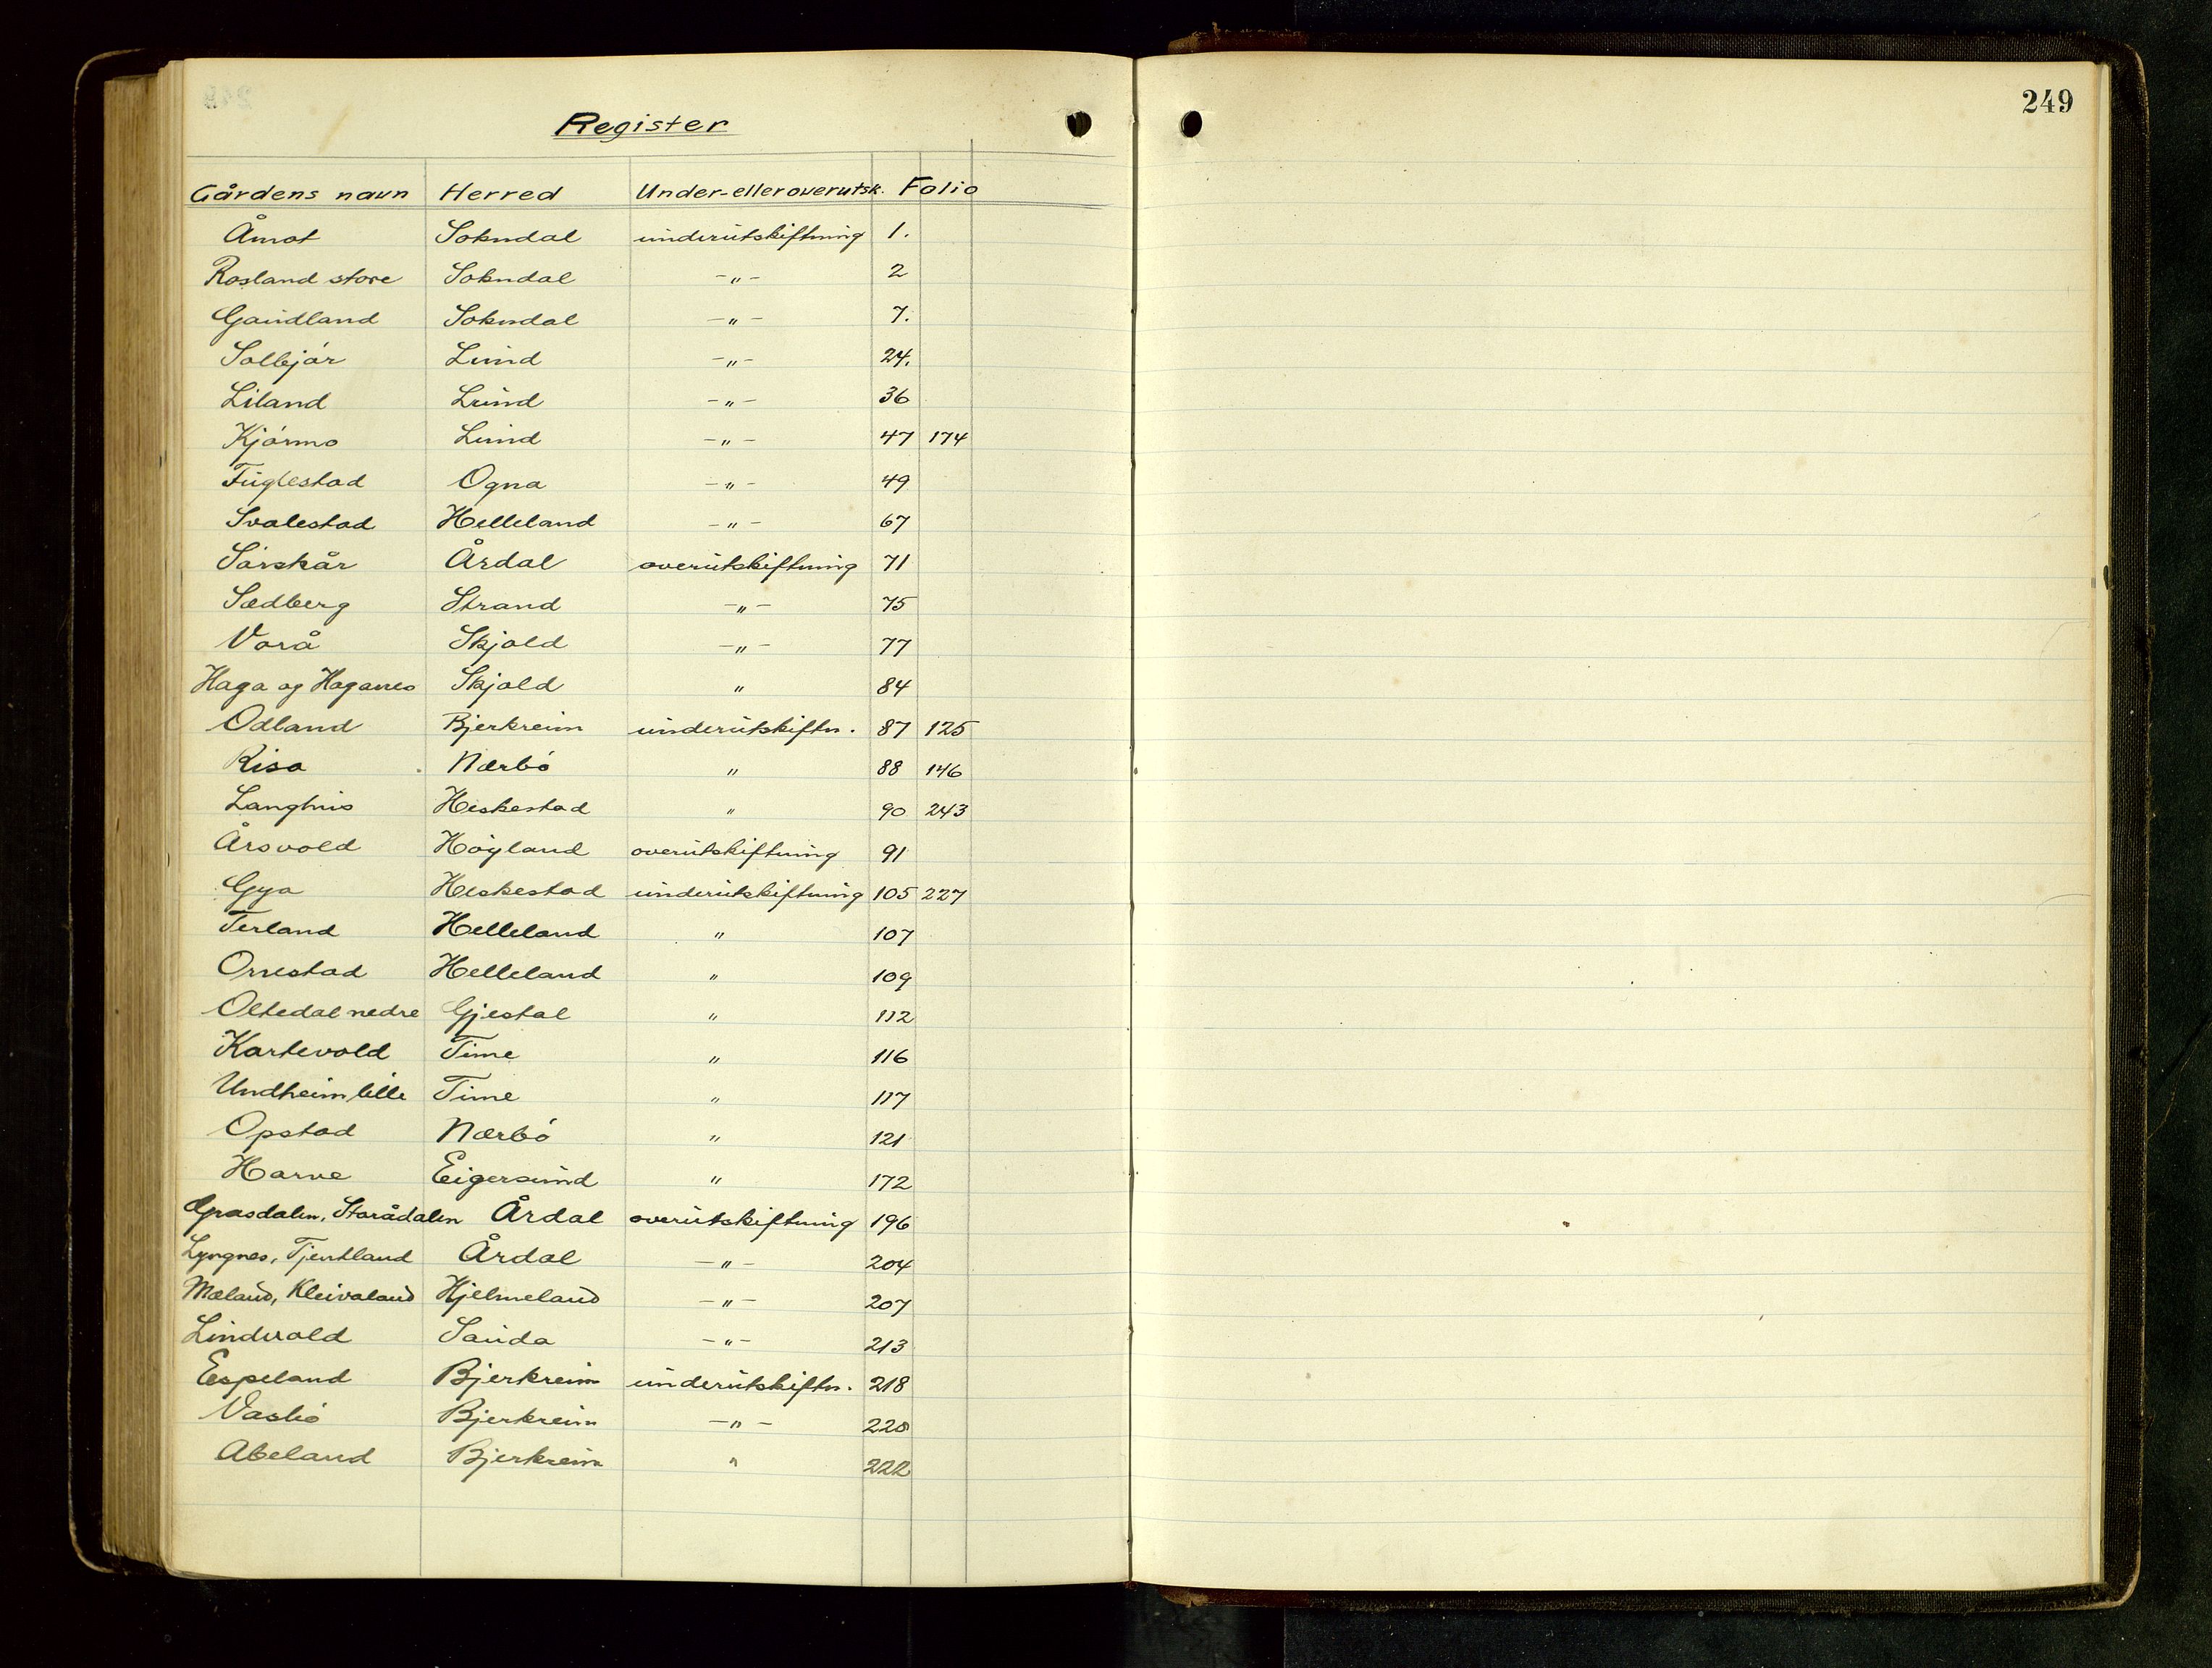 Register
Gårdens navn Herred Under-eller overutsk. Folio
Åmot Sokndal underutskiftning 1.
Rosland store Sokndal -〃- 2
Gaudland Sokndal -〃- 7.
Solbjør Lund -〃- 24.
Liland Lund -〃- 36
Kjørmo Lund -〃- 47 174
Fuglestad Ogna -〃- 49
Svalestad Helleland -〃- 67
Sørskår Årdal overutskiftning 71
Sedberg Strand -〃- 75
Vorå Skjold -〃- 77
Haga og Haganes Skjold 〃 84
Odland Bjerkreim underutskiftn. 87 125
Risa Nærbø 〃 88 146
Langhus Heskestad 〃 90 243
Årsvold Høyland overutskiftning 91
Gya Heskestad underutskiftning 105 227
Terland Helleland 〃 107
Orrestad Helleland 〃 109
Oltedal nedre Gjestal 〃 112
Kartevold Time 〃 116
Undheim lille Time 〃 117
Opstad Nærbø 〃 121
Harve Eigersund 〃 172
Grasdalen, Storådalen Årdal overutskiftning 196
Lyngnes, Tjentland Årdal -〃- 204
Mæland, Kleivaland Hjelmeland -〃- 207
Lindvold Sauda -〃- 213
Espeland Bjerkreim underutskiftn. 218
Vasbø Bjerkreim -〃- 220
Abeland Bjerkreim 〃 222
249